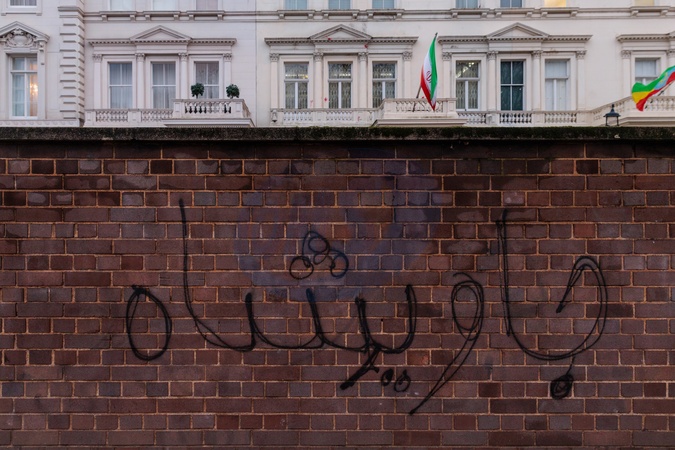 جاوید شاه